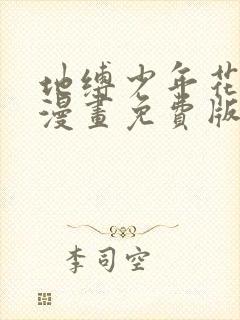 地缚少年花
漫畫免費版
李司空